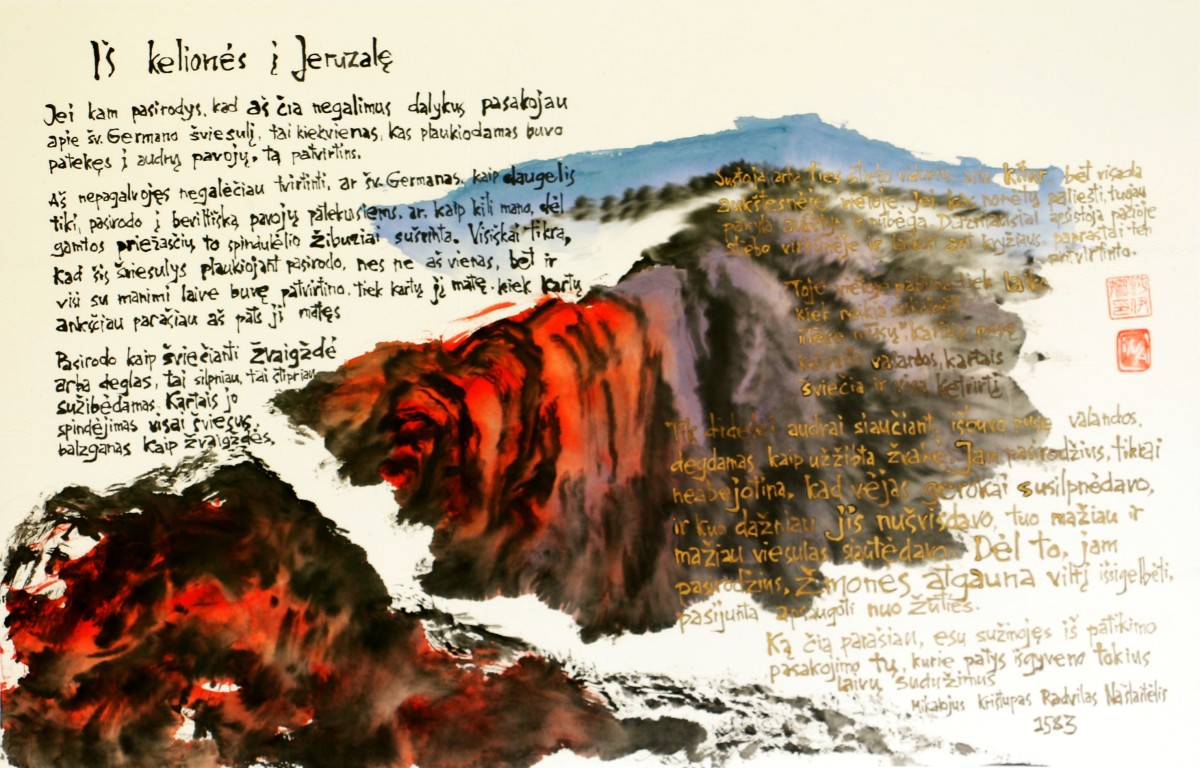 Iš kelionės į Jeruzalę
Jei kam pasirodys, kad aš čia negalimus dalykus pasakojau
apie šv. Germano šviesulį, tai kiekvienas, kas plaukiodamas buvo
patekęs į audrų pavojų, tą patvirtins.
Aš nepagalvojęs negalėčiau tvirtinti, ar šv. Germanas, kaip daugelis
tiki, pasirodo į beviltišką pavojų patekusiems, ar, kaip kiti mano, dėl
gamtos priežasčių, to spindulėlio žiburiai sušvinta. Visiškai tikra,
kad šis šviesulys plaukiojant pasirodo, nes ne aš vienas, bet ir
visi su manimi laive buvę patvirtino, tiek kartų jį matę, kiek kartų
anksčiau parašiau aš pats jį matęs
Pasirodo kaip šviečianti žvaigždė
arba deglas, tai silpniau, tai stipriau
sužibėdamas. Kartais jo
spindėjimas visai šviesus,
balzganas kaip žvaigždės.
Sustoja arba ties stiebo viduriu, arba kitur, bet visada
aukštesnėje vietoje. Jei kas norėtų paliesti, tuojau
pakyla aukštyn ir nubėga. Dažniausiai apsistoja pačioje
stiebo viršūnėje ir tariasi ant kryžiaus, paprastai ten
pritvirtinto.
Toje vietoje pasilieka tiek laiko,
kiek
kartais pusę
valandos, kartais
šviečia ir visą ketvirtį
Tik didelei audrai siaučiant, išbuvo pusę valandos,
degdamas kaip užžibta žvakė. Jam pasirodžius, tikrai
neabejotina, kad vėjas gerokai susilpnėdavo,
ir kuo dažniau jis nušvisdavo, tuo mažiau ir
mažiau viesulas siautėdavo. Dėl to, jam
pasirodžius, žmonės atgauna viltį išsigelbėti,
pasijunta apsaugoti nuo žūties.
Ką čia parašiau, esu sužinojęs iš patikimo
pasakojimo tų, kurie patys išgyveno tokius
laivų sudužimus
Mikalojus Kristupas Radvilas Našlaitėlis
1583